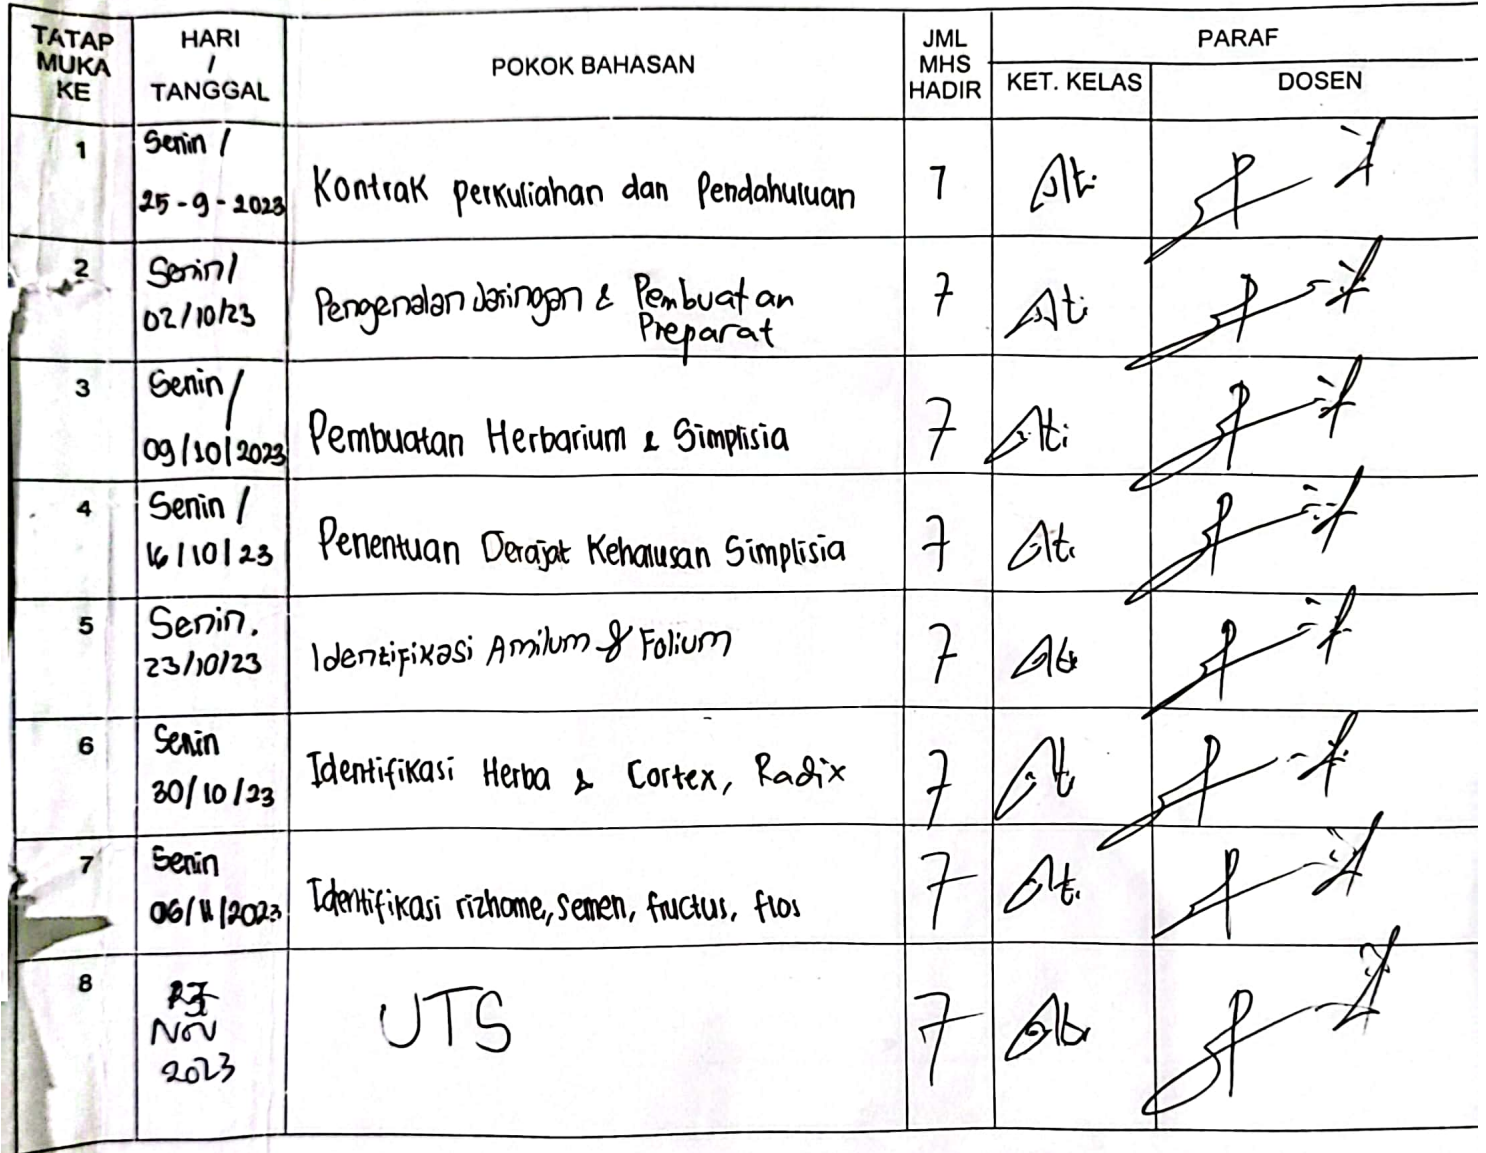 TATAP MUKA KE
HARI / TANGGAL
POKOK BAHASAN
JML MHS HADIR
PARAF
KET. KELAS
DOSEN
1
Senin /
25 - 9 - 2023
Kontrak perkuliahan dan Pendahuluan
7
2
Senin /
02/10/23
Pengenalan Jaringan & Pembuatan
Preparat
7
3
Senin /
09/10/2023
Pembuatan Herbarium & Simplisia
7
4
Senin /
16/10/23
Penentuan Derajat Kehalusan Simplisia
7
5
Senin.
23/10/23
Identifikasi Amilum & Folium
7
6
Senin
30/10/23
Identifikasi Herba & Cortex, Radix
7
7
Senin
06/11/2023
Identifikasi rizhome, semen, fructus, flos
7
8
Nov
2023
UTS
7